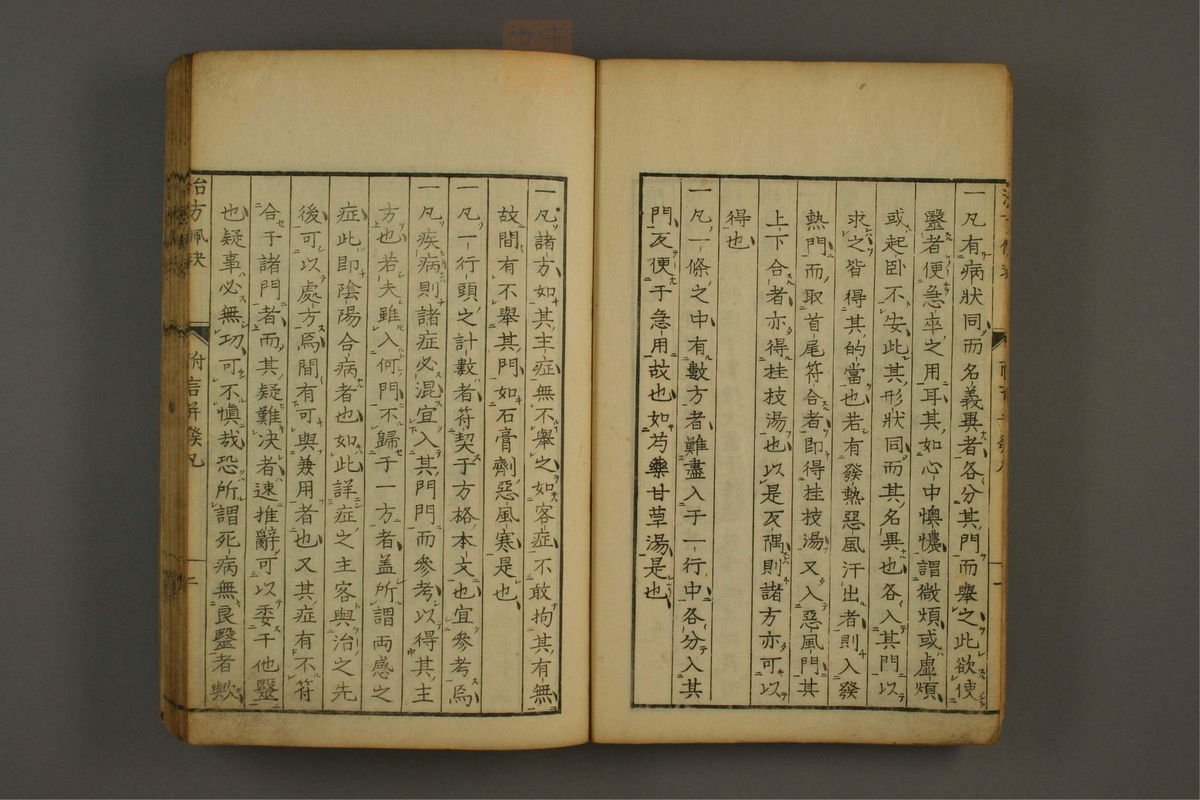 一凡有病狀同而名義異者各分其門而擧之此欲使
毉者便急卒之用耳其如心中懊憹謂微煩或虛煩
或起臥不安此其形狀同而其名異也各入其門以
求之皆得其的當也若有發熱惡風汗出者則入發
熱門而取首尾符合者即得桂枝湯又入惡風門其
上下合者亦得桂枝湯也以是反隅則諸方亦可以
得也
一凡一條之中有數方者難盡入于一行中各分入其
門反便于急用故也如芍藥甘草湯是也
一凡諸方如其主症無不擧之如客症不敢拘其有無
故間有不擧其門如石膏劑惡風寒是也
一凡一行頭之計數者符契于方格本文也宜參考焉
一凡疾病則諸症必混宜入其門門而參考以得其主
方也若夫雖入何門不歸于一方者盖所謂兩感之
症此即陰陽合病者也如此詳症之主客與治之先
後可以處方焉間有可與兼用者也又其症有不符
合于諸門者而其疑難決者速推辭可以委于他毉
也疑事必無功可不愼哉恐所謂死病無良毉者歟
附言幷發凡
二